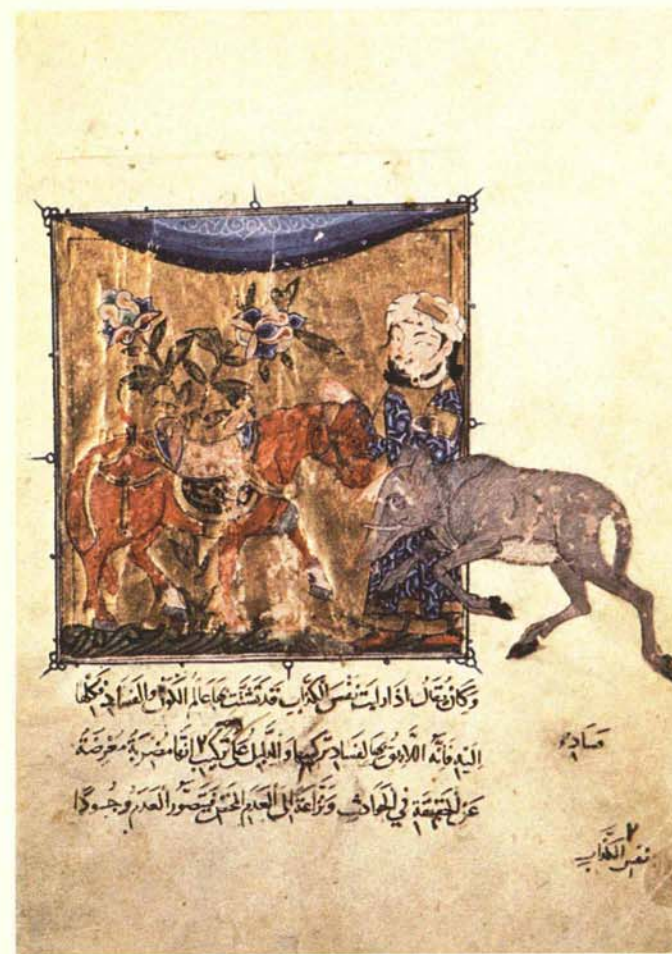 وكان يقال اذا رايت نفس الكذاب قد تشبثت بها عالم الكون والفساد فكلها
اليه فانه اللائق بها لفساد تركيبها والدليل على انها مضربة معرضة
عن الحقيقة في الحادث ونزاعة الى العدم المحض فتصور العدم وجودا
نفس الكذاب